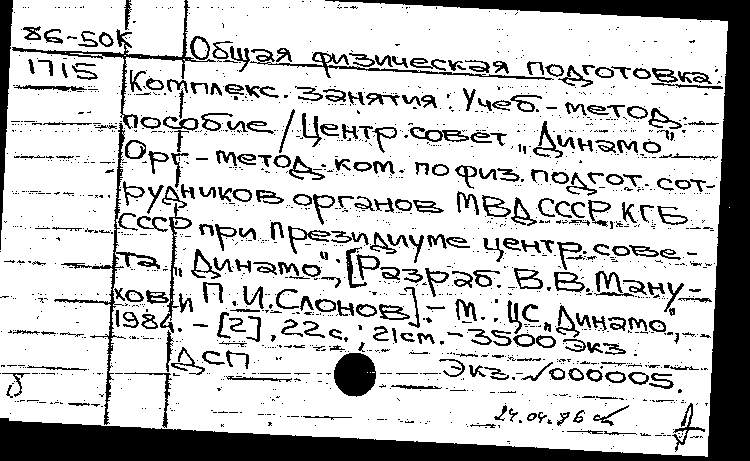 86-50К
1715
Общая физическая подготовка:
Комплекс. занятия: Учеб.-метод.
пособие / Центр. совет „Динамо".
Орг.-метод. ком. по физ. подгот. сот-
рудников органов МВД СССР, КГБ
СССР при Президиуме центр. сове-
та „Динамо"; [Разраб. В.В. Ману-
хов и П.И. Слонов]. - М.: ЦС „Динамо",
1984. - [2], 22 с.; 21 см. - 3500 экз.
ДСП
Экз. №000005.
24.04.86